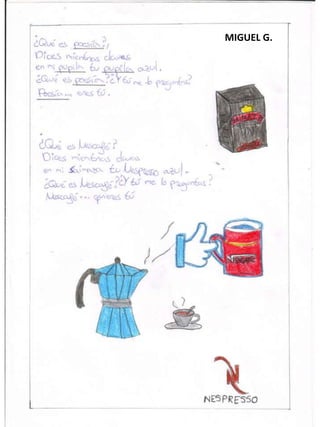 MIGUEL G.
¿Qué es poesía?,
Dices mientras clavas
en mi pupila tu pupila azul.
¿Qué es poesía? ¿Y tú me lo preguntas?
Poesía... eres tú.
¿Qué es Nescafé?
Dices mientras clavas
en mi tu Nespresso azul.
¿Qué es Nescafé? ¿Y tú me lo preguntas?
Nescafé... eres tú
NESPRESSO